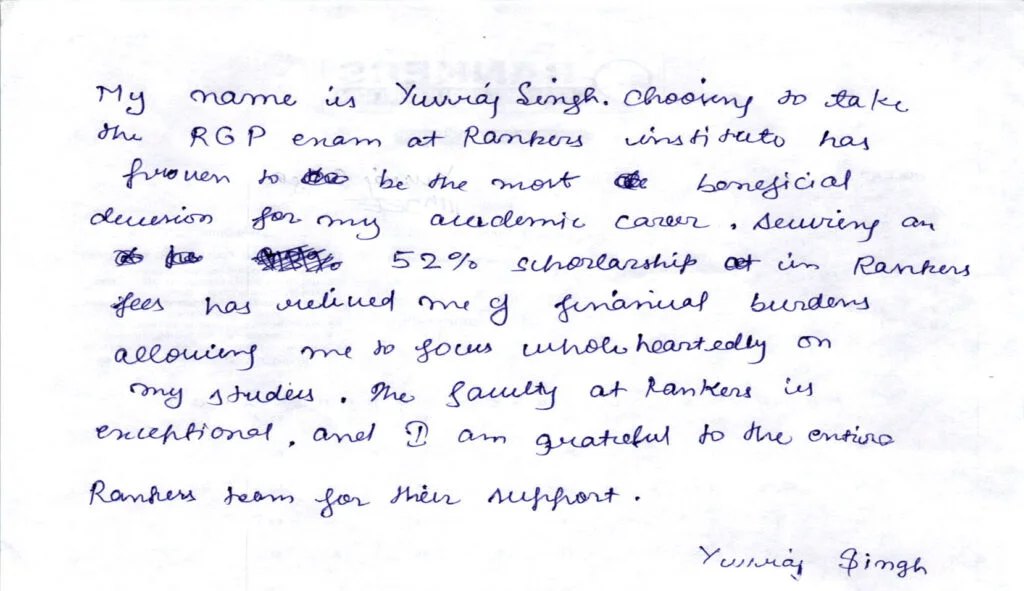 My name is Yuvraj Singh. Choosing to take
the RGP exam at Rankers institute has
proven to be the most beneficial
decision for my academic career. Securing an
52% schorlarship in Rankers
fees has relived me of financial burdens
allowing me to focus wholeheartedly on
my studies. The faculty at Rankers is
exceptional, and I am grateful to the entire
Rankers team for their support.
Yuvraj Singh